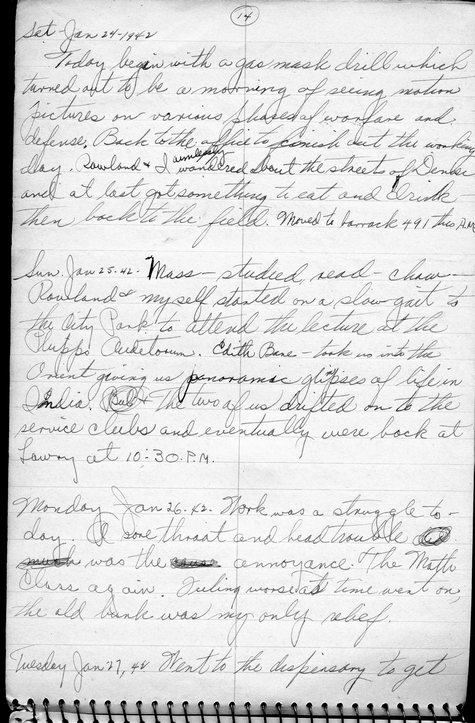 14
Sat Jan 24-1942
Today begin with a gas mask drill which
turned out to be a morning of seeing motion
pictures on various phases of warfare and
defense. Back to the office to finish out the working
day. Rowland & I aimlessly wandered about the streets of Denver
and at last got something to eat and drink
then back to the field. Moved to barrack 491 this P.M.
Sun. Jan 25-42. Mass - studied, read - chow -
Rowland & myself started on a slow gait to
the City Park to attend the lecture at the
Phipps Auditorium. Edith Bane - took us into the
Orient giving us panoramic glimpses of life in
India. But the two of us drifted on to the
service clubs and eventually were back at
Lowry at 10:30 P.M.
Monday Jan 26-42. Work was a struggle to-
day. A sore throat and head trouble
much was the cause annoyance. The Math
Class again. Feeling worse as time went on,
the old bunk was my only relief.
Tuesday Jan 27, 42 Went to the dispensary to get